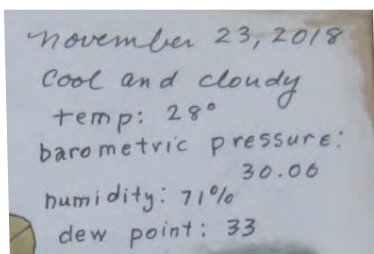 november 23, 2018
Cool and cloudy
temp: 28°
barometric pressure:
30.06
humidity: 71%
dew point: 33